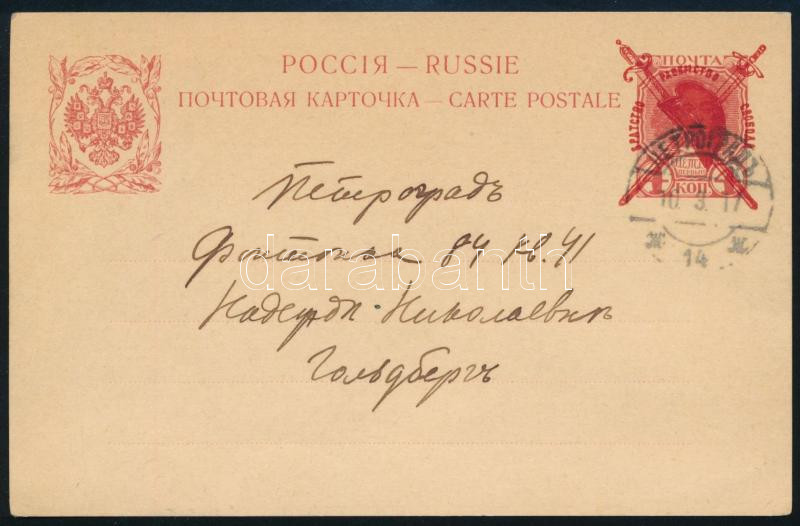 РОССІЯ — RUSSIE
ПОЧТОВАЯ КАРТОЧКА — CARTE POSTALE
ПОЧТА
БРАТСТВО РАВЕНСТВО СВОБОДА
4 КОП 4
ПЕТРОГРАДЪ
10.3.17
14
Петроградъ
Фонтанка 84 кв. 41
Надежде Николаевне
Гольдбергъ
darabanth